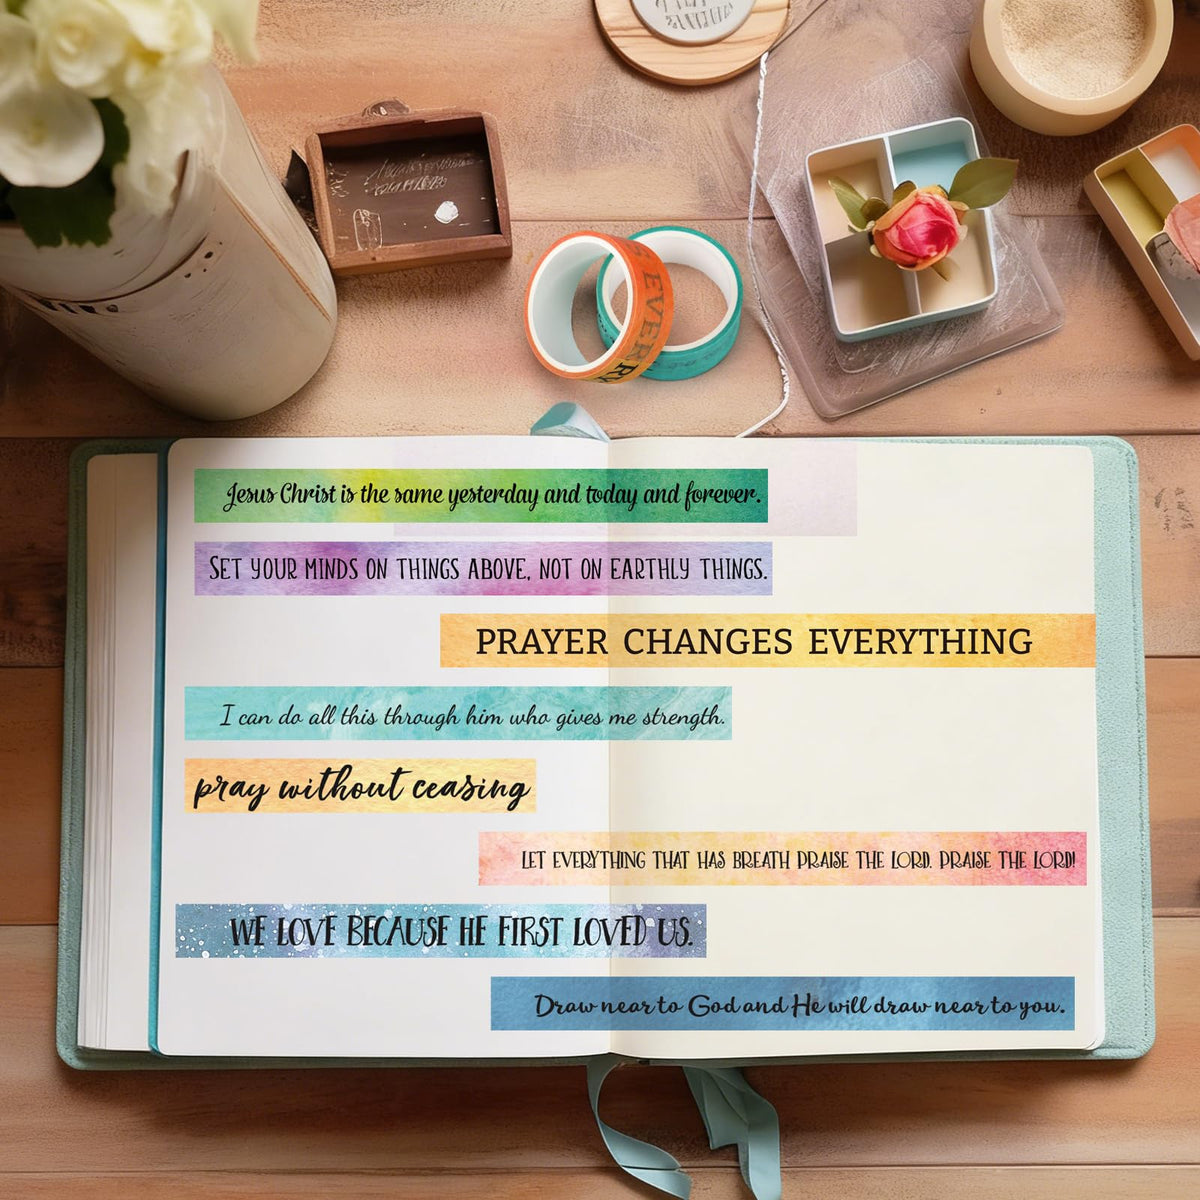 EVER
RY
Jesus Christ is the same yesterday and today and forever.
SET YOUR MINDS ON THINGS ABOVE, NOT ON EARTHLY THINGS.
PRAYER CHANGES EVERYTHING
I can do all this through him who gives me strength.
pray without ceasing
LET EVERYTHING THAT HAS BREATH PRAISE THE LORD. PRAISE THE LORD!
WE LOVE BECAUSE HE FIRST LOVED US.
Draw near to God and He will draw near to you.